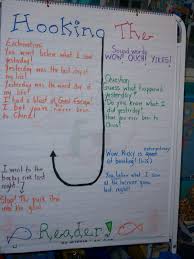 Hooking The
Exclamation:
You won't believe what I saw
yesterday!
Yesterday was the best day of
my life!
Yesterday was the worst day of
my life!
I had a blast at Great Escape!
I bet you've never been
to China!
Sound words
WOW! OUCH! YIKES!
Question
Guess what happened
yesterday?
Do you know what I
did yesterday?
Have you ever been to
China?
I went to the
last night!
Stop! The puck
into the goal.
Wow, Ricky is
at bowling!
You below what I saw
at the
last night!
Reader!